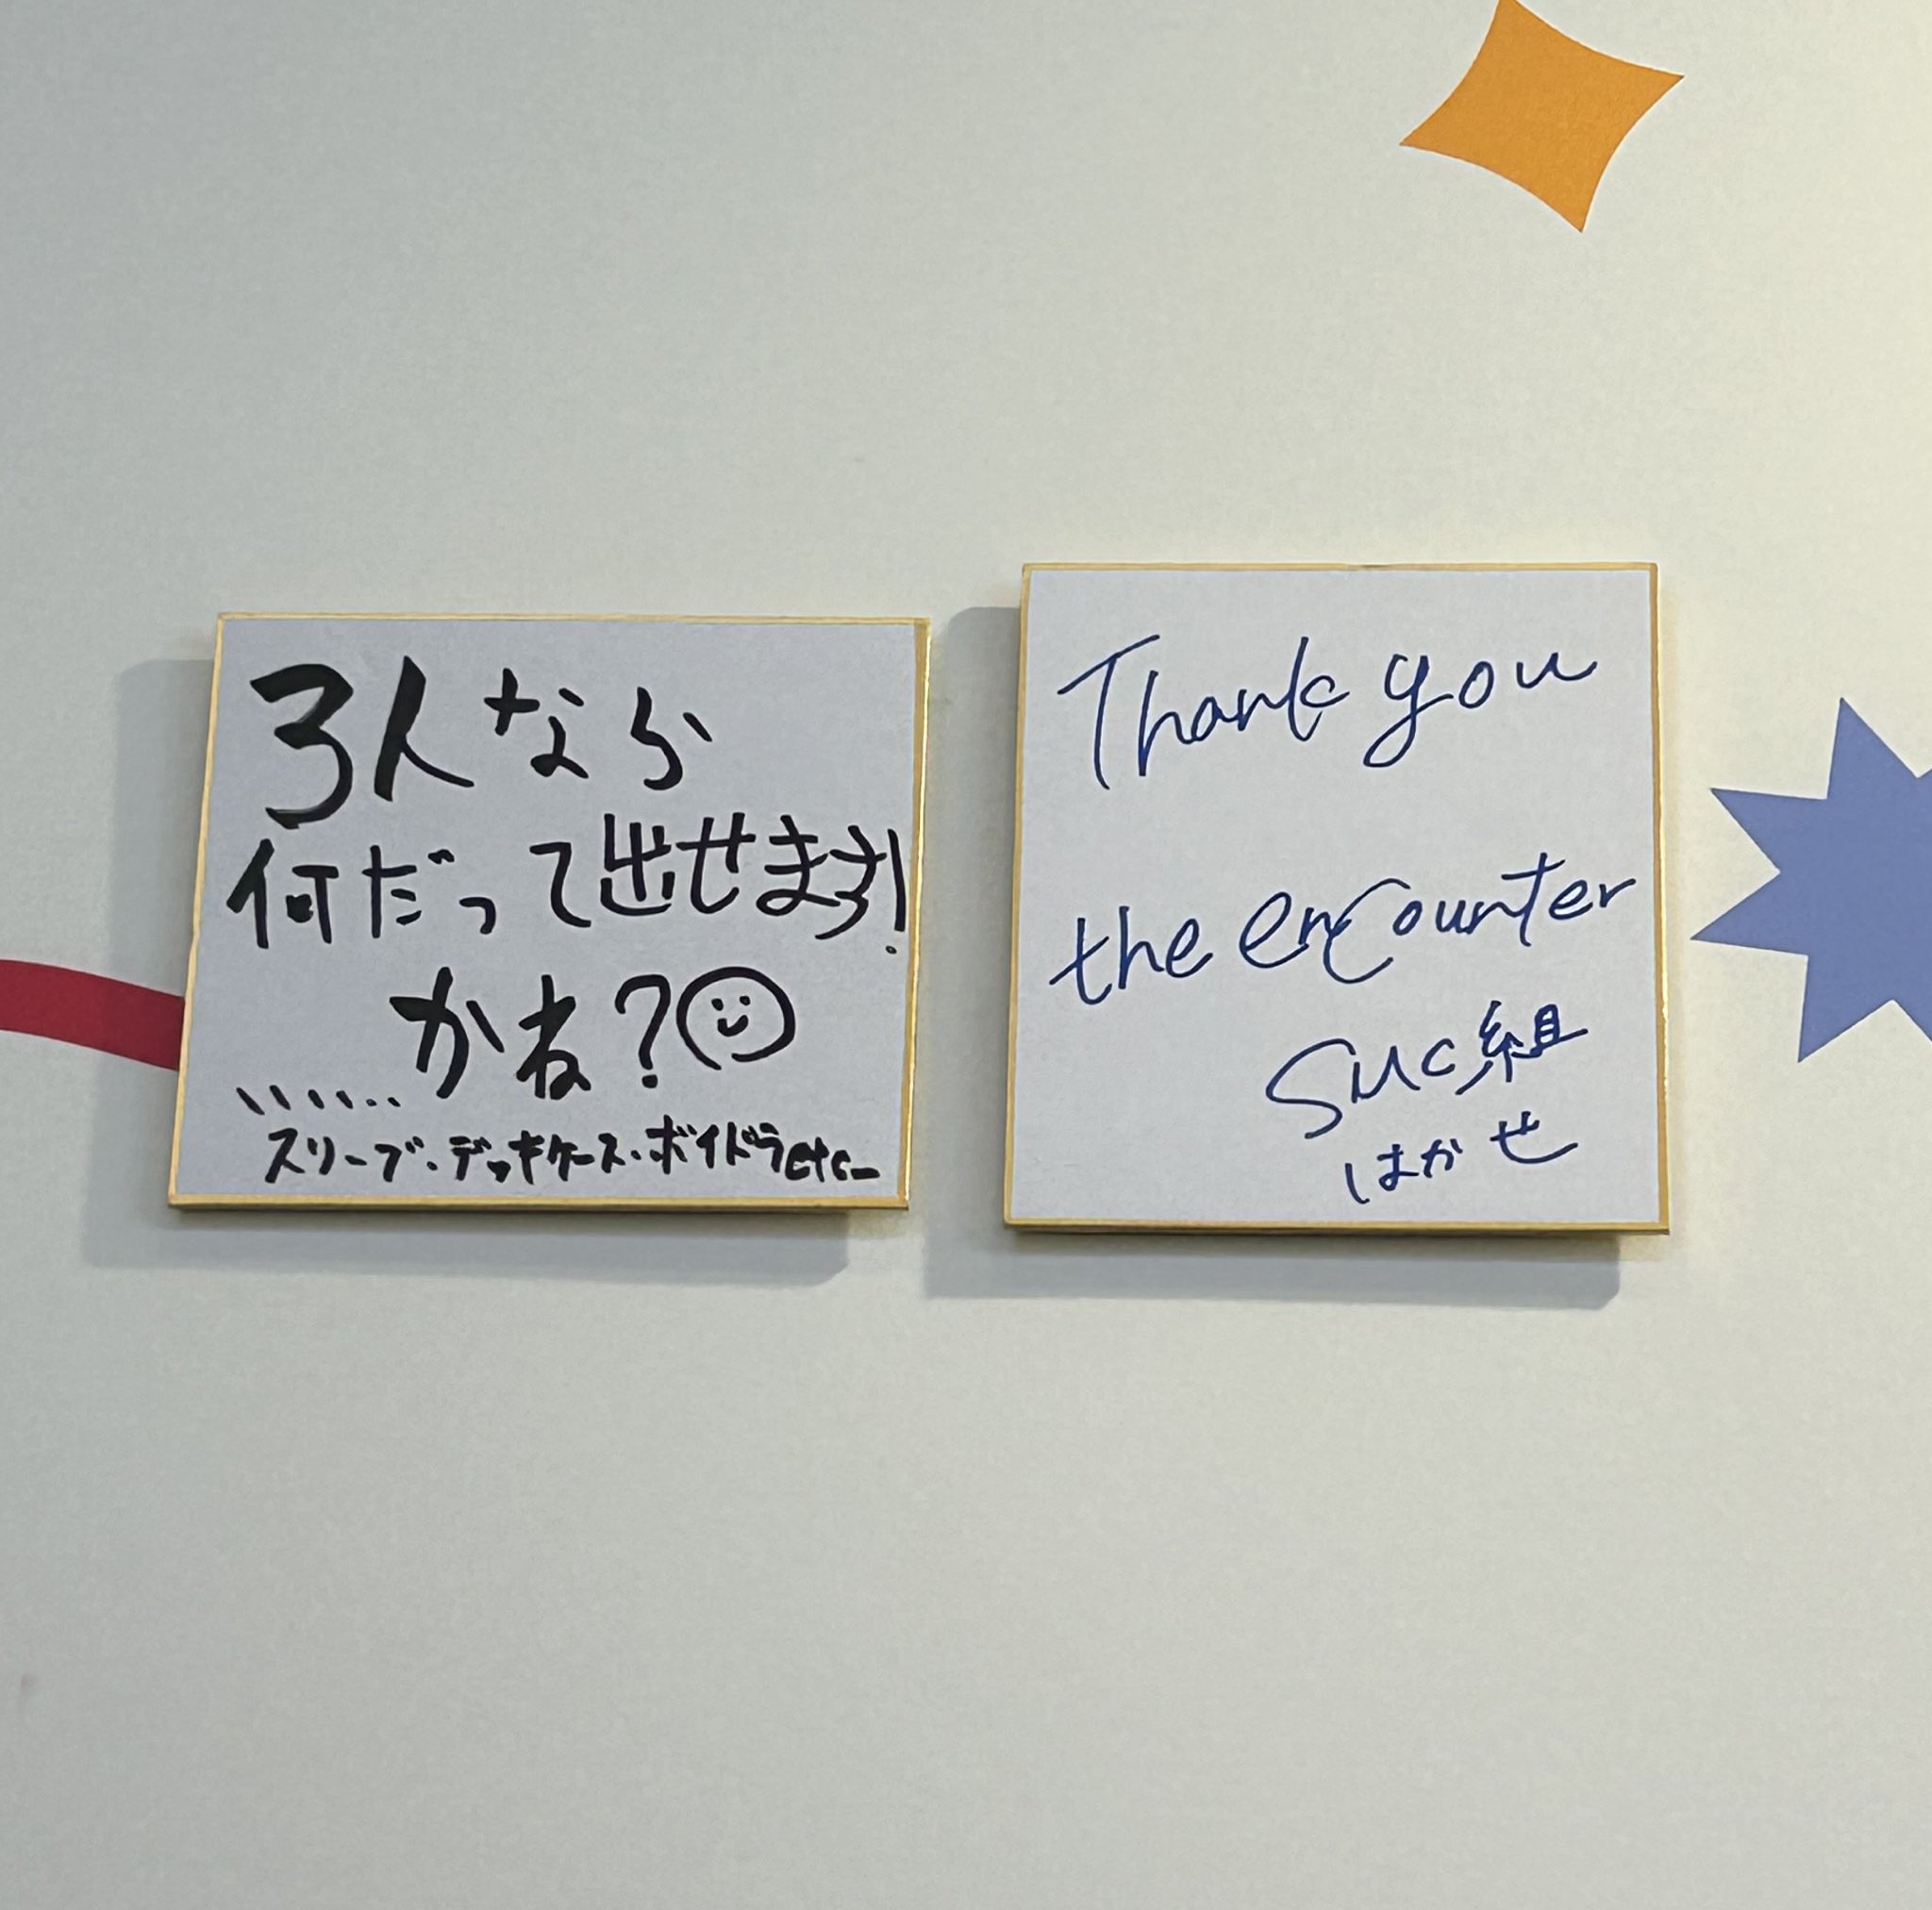 3人なら
何だって出せます!
かね?
......
スリーブ・デッキケース・ボイドラetc…
Thank you
the encounter
SMC組
はかせ